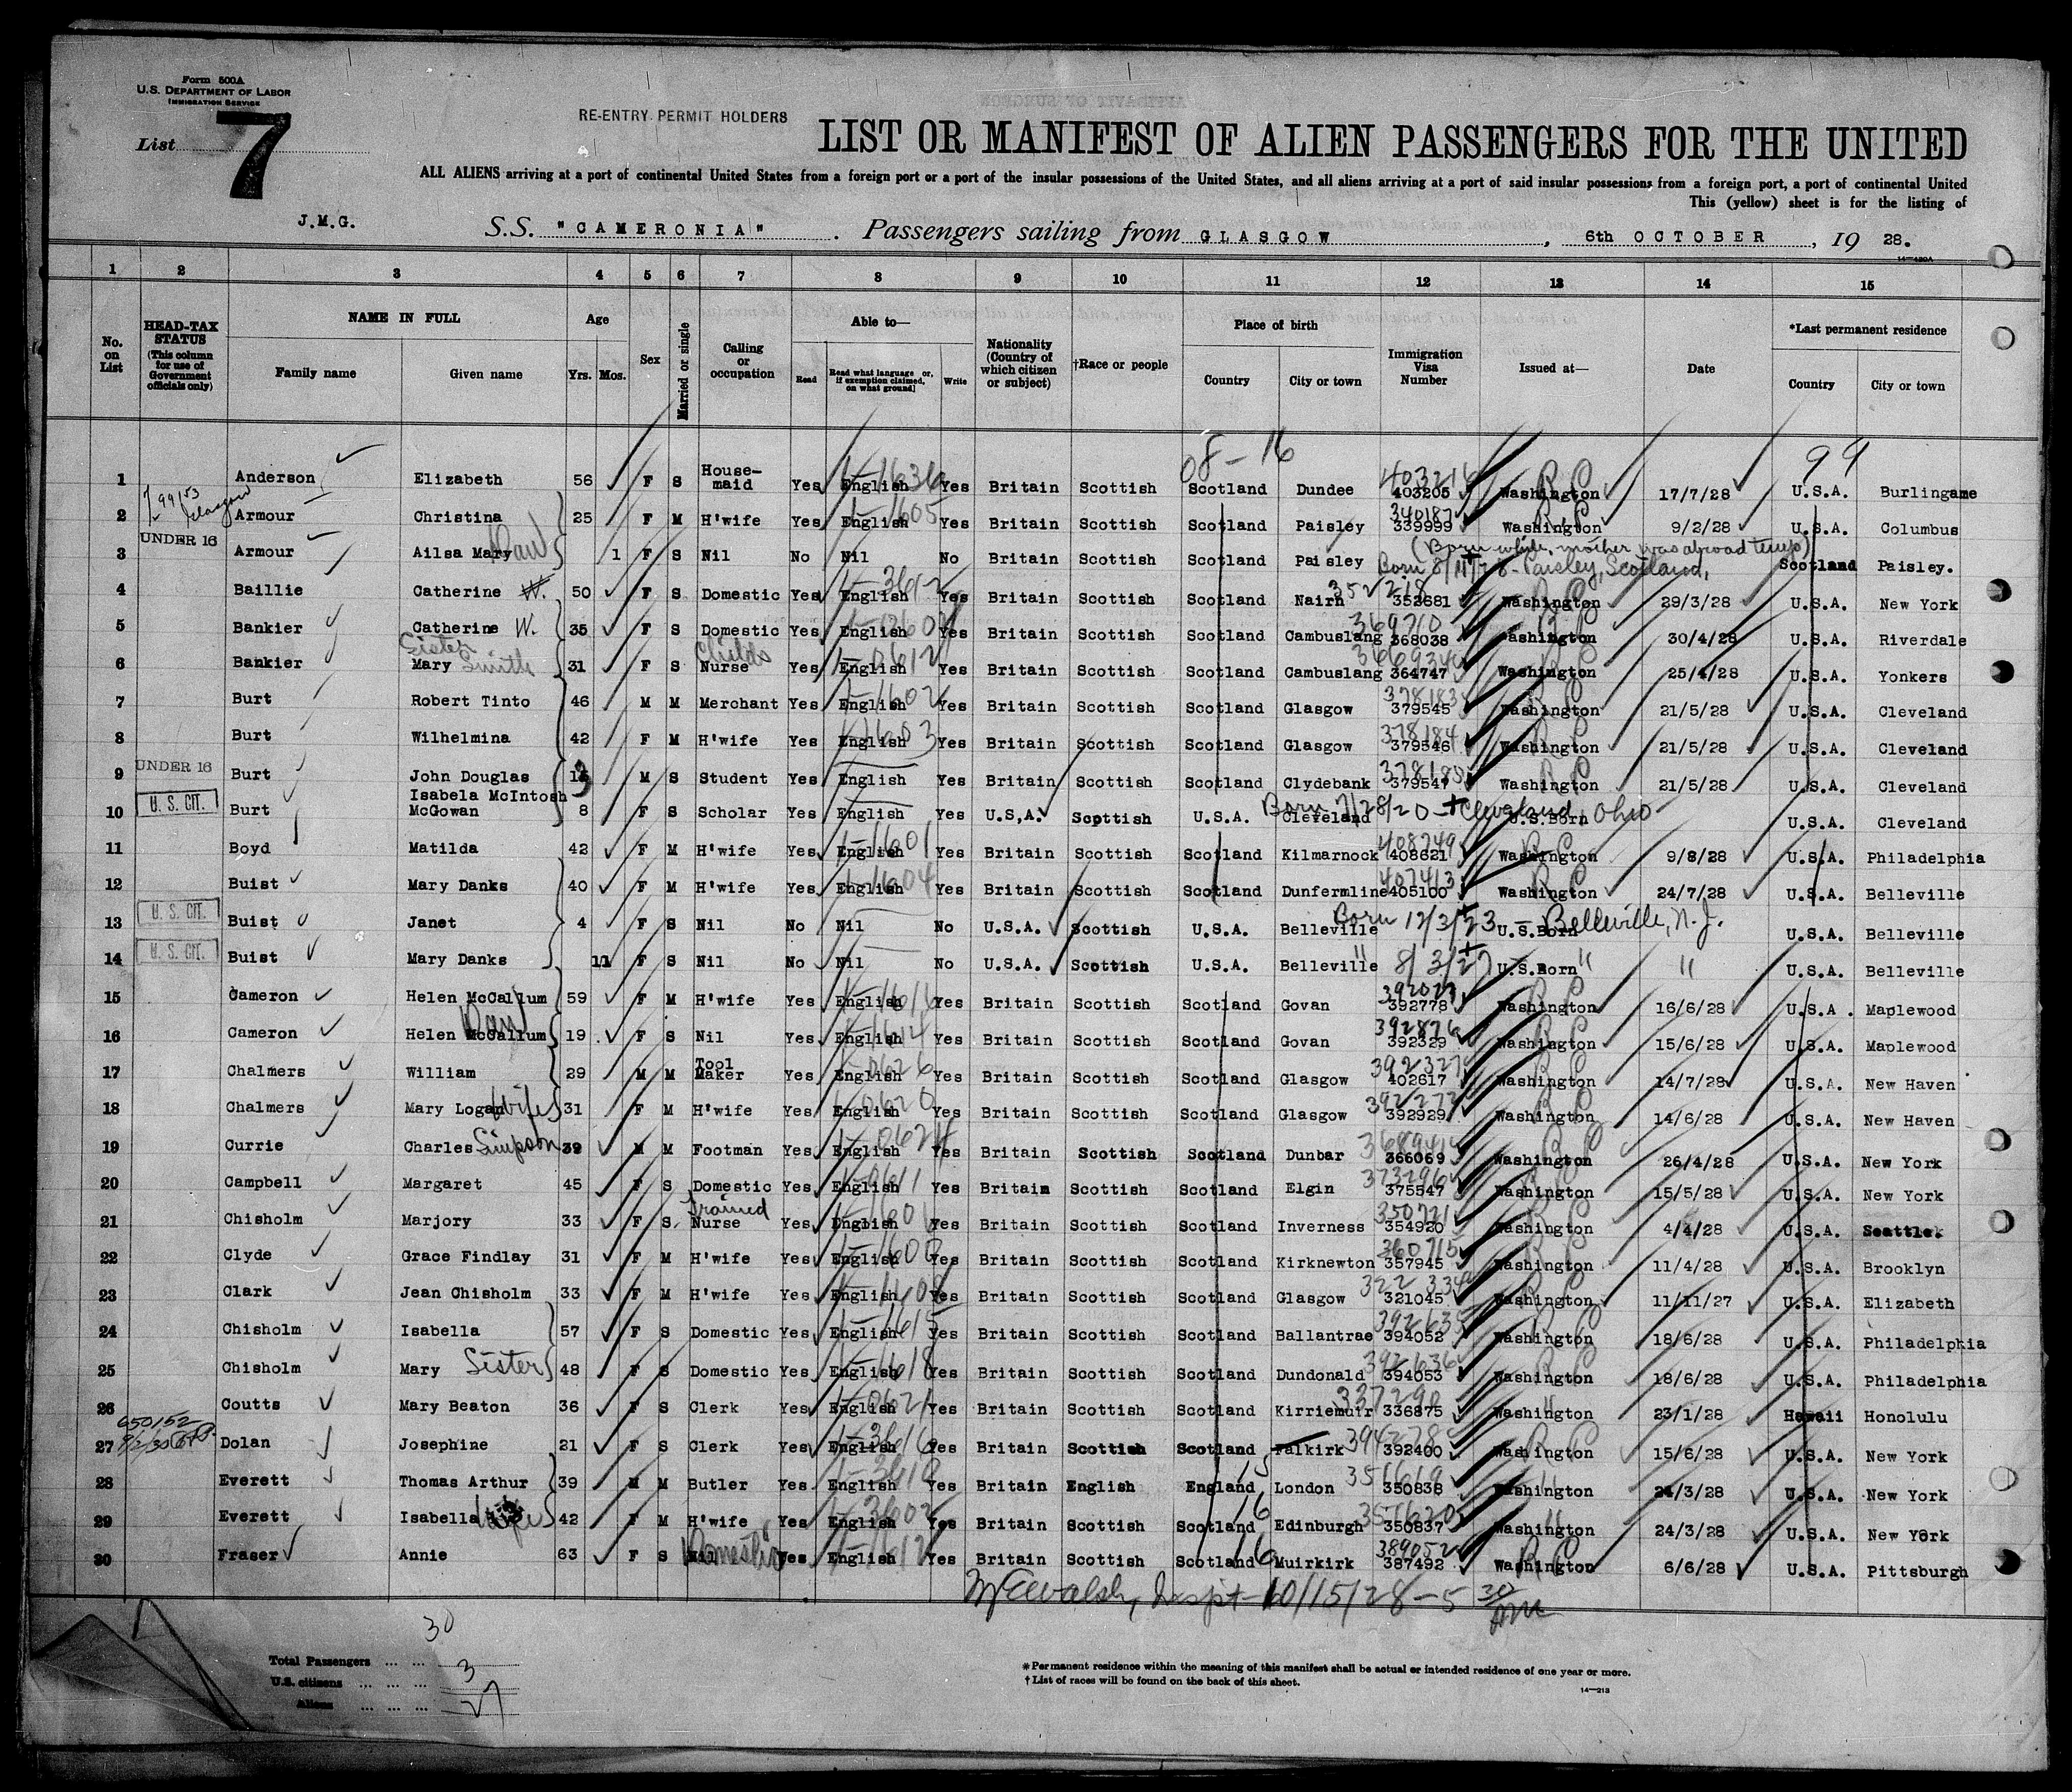 Form 500A
U.S. DEPARTMENT OF LABOR
IMMIGRATION SERVICE
List 7
RE-ENTRY PERMIT HOLDERS
LIST OR MANIFEST OF ALIEN PASSENGERS FOR THE UNITED
ALL ALIENS arriving at a port of continental United States from a foreign port or a port of the insular possessions of the United States, and all aliens arriving at a port of said insular possessions from a foreign port, a port of continental United
This (yellow) sheet is for the listing of
J.M.G. S.S. "CAMERONIA". Passengers sailing from GLASGOW, 6th OCTOBER, 19 28.
14—430A
1 2 3 4 5 6 7 8 9 10 11 12 13 14 15
No. on List
HEAD-TAX STATUS (This column for use of Government officials only)
NAME IN FULL Family name Given name
Age Yrs. Mos.
Sex
Married or single
Calling or occupation
Able to— Read Read what language or, if exemption claimed, on what ground Write
Nationality (Country of which citizen or subject)
†Race or people
Place of birth Country City or town
Immigration Visa Number
Issued at—
Date
*Last permanent residence Country City or town
08-16 99
1 Anderson Elizabeth 56 F S House-maid Yes English 1-1636 Yes Britain Scottish Scotland Dundee 403216 403205 Washington RP 17/7/28 U.S.A. Burlingame
2 Armour Christina 25 F M H'wife Yes English 1-1605 Yes Britain Scottish Scotland Paisley 340187 339999 Washington RP 9/2/28 U.S.A. Columbus
3 UNDER 16 Armour Ailsa Mary Dau 1 F S Nil No Nil No Britain Scottish Scotland Paisley (Born while mother was abroad temp) Born 8/11/28 - Paisley, Scotland, Scotland Paisley.
4 Baillie Catherine W. 50 F S Domestic Yes English Yes Britain Scottish Scotland Nairn 352218 352681 Washington 29/3/28 U.S.A. New York
5 Bankier Catherine W. 35 F S Domestic Yes English Yes Britain Scottish Scotland Cambuslang 369710 368038 Washington RP 30/4/28 U.S.A. Riverdale
6 Bankier Sister Mary Smith 31 F S Childs Nurse Yes English 1-0612 Yes Britain Scottish Scotland Cambuslang 364747 Washington RP 25/4/28 U.S.A. Yonkers
7 Burt Robert Tinto 46 M M Merchant Yes English 1-1602 Yes Britain Scottish Scotland Glasgow 378183 379545 Washington RP 21/5/28 U.S.A. Cleveland
8 Burt Wilhelmina 42 F M H'wife Yes English 1-1603 Yes Britain Scottish Scotland Glasgow 378184 379546 Washington RP 21/5/28 U.S.A. Cleveland
9 UNDER 16 Burt John Douglas M S Student Yes English Yes Britain Scottish Scotland Clydebank 378180 379547 Washington RP 21/5/28 U.S.A. Cleveland
10 U. S. CIT. Burt Isabela McIntosh McGowan 8 F S Scholar Yes English Yes U.S,A. Scottish U.S.A. Cleveland Born 7/28/20 - Cleveland, Ohio U.S.Born U.S.A. Cleveland
11 Boyd Matilda 42 F M H'wife Yes English 1-1601 Yes Britain Scottish Scotland Kilmarnock 408749 408621 Washington RP 9/8/28 U.S.A. Philadelphia
12 Buist Mary Danks 40 F M H'wife Yes English 1-1604 Yes Britain Scottish Scotland Dunfermline 407413 405100 Washington RP 24/7/28 U.S.A. Belleville
13 U. S. CIT. Buist Janet 4 F S Nil No Nil No U.S.A. Scottish U.S.A. Belleville Born 12/3/23 - Belleville, N.J. U.S.Born U.S.A. Belleville
14 U. S. CIT. Buist Mary Danks 11 F S Nil No Nil No U.S.A. Scottish U.S.A. Belleville " 8/3/27 U.S.Born " " U.S.A. Belleville
15 Cameron Helen McCallum 59 F M H'wife Yes English 1-1611 Yes Britain Scottish Scotland Govan 392778 Washington RP 16/6/28 U.S.A. Maplewood
16 Cameron Helen McCallum Dau 19 F S Nil Yes English 1-1614 Yes Britain Scottish Scotland Govan 392876 392329 Washington RP 15/6/28 U.S.A. Maplewood
17 Chalmers William 29 M M Tool Maker Yes English 1-0626 Yes Britain Scottish Scotland Glasgow 392327 402617 Washington RP 14/7/28 U.S.A. New Haven
18 Chalmers Mary Logan Wife 31 F M H'wife Yes English 1-0620 Yes Britain Scottish Scotland Glasgow 392273 392929 Washington RP 14/6/28 U.S.A. New Haven
19 Currie Charles Simpson 39 M M Footman Yes English 1-0624 Yes Britain Scottish Scotland Dunbar 368941 366069 Washington RP 26/4/28 U.S.A. New York
20 Campbell Margaret 45 F S Domestic Yes English 1-0611 Yes Britain Scottish Scotland Elgin 373296 375547 Washington RP 15/5/28 U.S.A. New York
21 Chisholm Marjory 33 F S Trained Nurse Yes English Yes Britain Scottish Scotland Inverness 350721 354920 Washington 4/4/28 U.S.A. Seattle.
22 Clyde Grace Findlay 31 F M H'wife Yes English Yes Britain Scottish Scotland Kirknewton 360715 357945 Washington RP 11/4/28 U.S.A. Brooklyn
23 Clark Jean Chisholm 33 F M H'wife Yes English Yes Britain Scottish Scotland Glasgow 322334 321045 Washington RP 11/11/27 U.S.A. Elizabeth
24 Chisholm Isabella 57 F S Domestic Yes English 1-1615 Yes Britain Scottish Scotland Ballantrae 392635 394052 Washington RP 18/6/28 U.S.A. Philadelphia
25 Chisholm Mary Sister 48 F S Domestic Yes English 1-1618 Yes Britain Scottish Scotland Dundonald 392636 394053 Washington RP 18/6/28 U.S.A. Philadelphia
26 Coutts Mary Beaton 36 F S Clerk Yes English 1-0621 Yes Britain Scottish Scotland Kirriemuir 337290 336875 Washington " 23/1/28 Hawaii Honolulu
27 Dolan Josephine 21 F S Clerk Yes English 1-3616 Yes Britain Scottish Scotland Falkirk 394278 392400 Washington RP 15/6/28 U.S.A. New York
28 Everett Thomas Arthur 39 M M Butler Yes English 1-3618 Yes Britain English England 15 London 351619 350838 Washington " 24/3/28 U.S.A. New York
29 Everett Isabella Wife 42 F M H'wife Yes English 1-3602 Yes Britain Scottish Scotland 16 Edinburgh 351620 350837 Washington " 24/3/28 U.S.A. New York
30 Fraser Annie 63 F S Nil Domestic Yes English 1-1612 Yes Britain Scottish Scotland 16 Muirkirk 389052 387492 Washington RP 6/6/28 U.S.A. Pittsburgh
Walsh, Inspt- 10/15/28 - 5 30 PM
30
Total Passengers ... ...
U.S. citizens ... ... ... 3
Aliens ... ... ... 27
*Permanent residence within the meaning of this manifest shall be actual or intended residence of one year or more.
†List of races will be found on the back of this sheet.
14—213